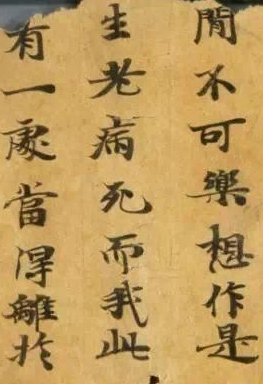 閒不可樂想作是
生老病死而我此
有一處當浔離於